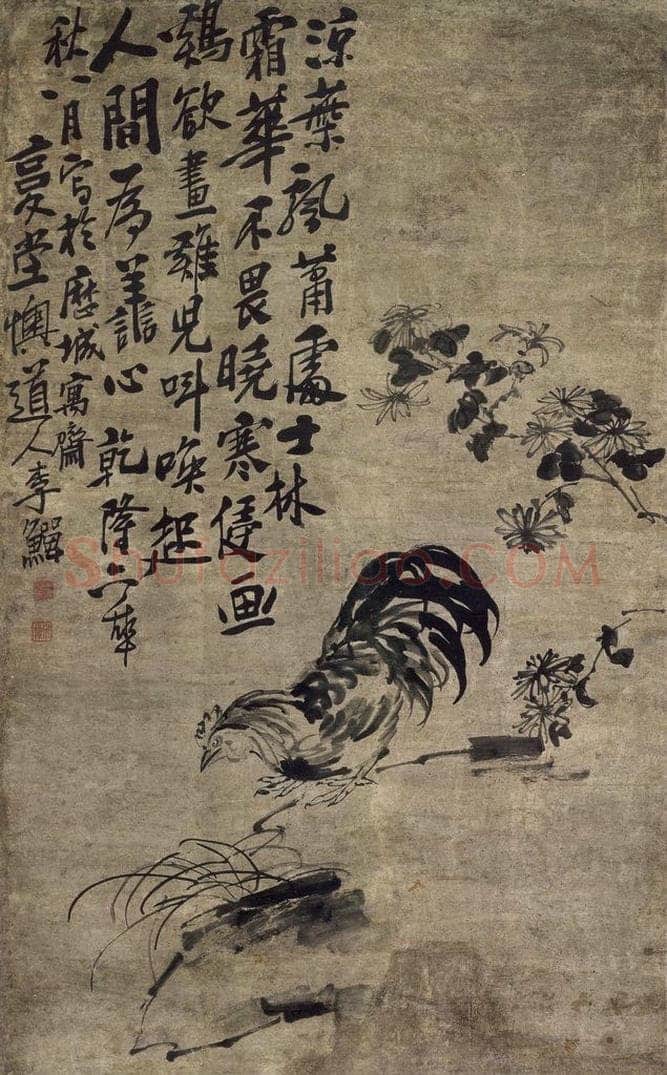 涼葉飄蕭處士林
霜華不畏曉寒侵画
鷄欲畫雞兒叫喚起
人間為譱心乾隆六年
秋八月写於歷城寓齋
复堂懊道人李鱓
Shufaziliao.COM